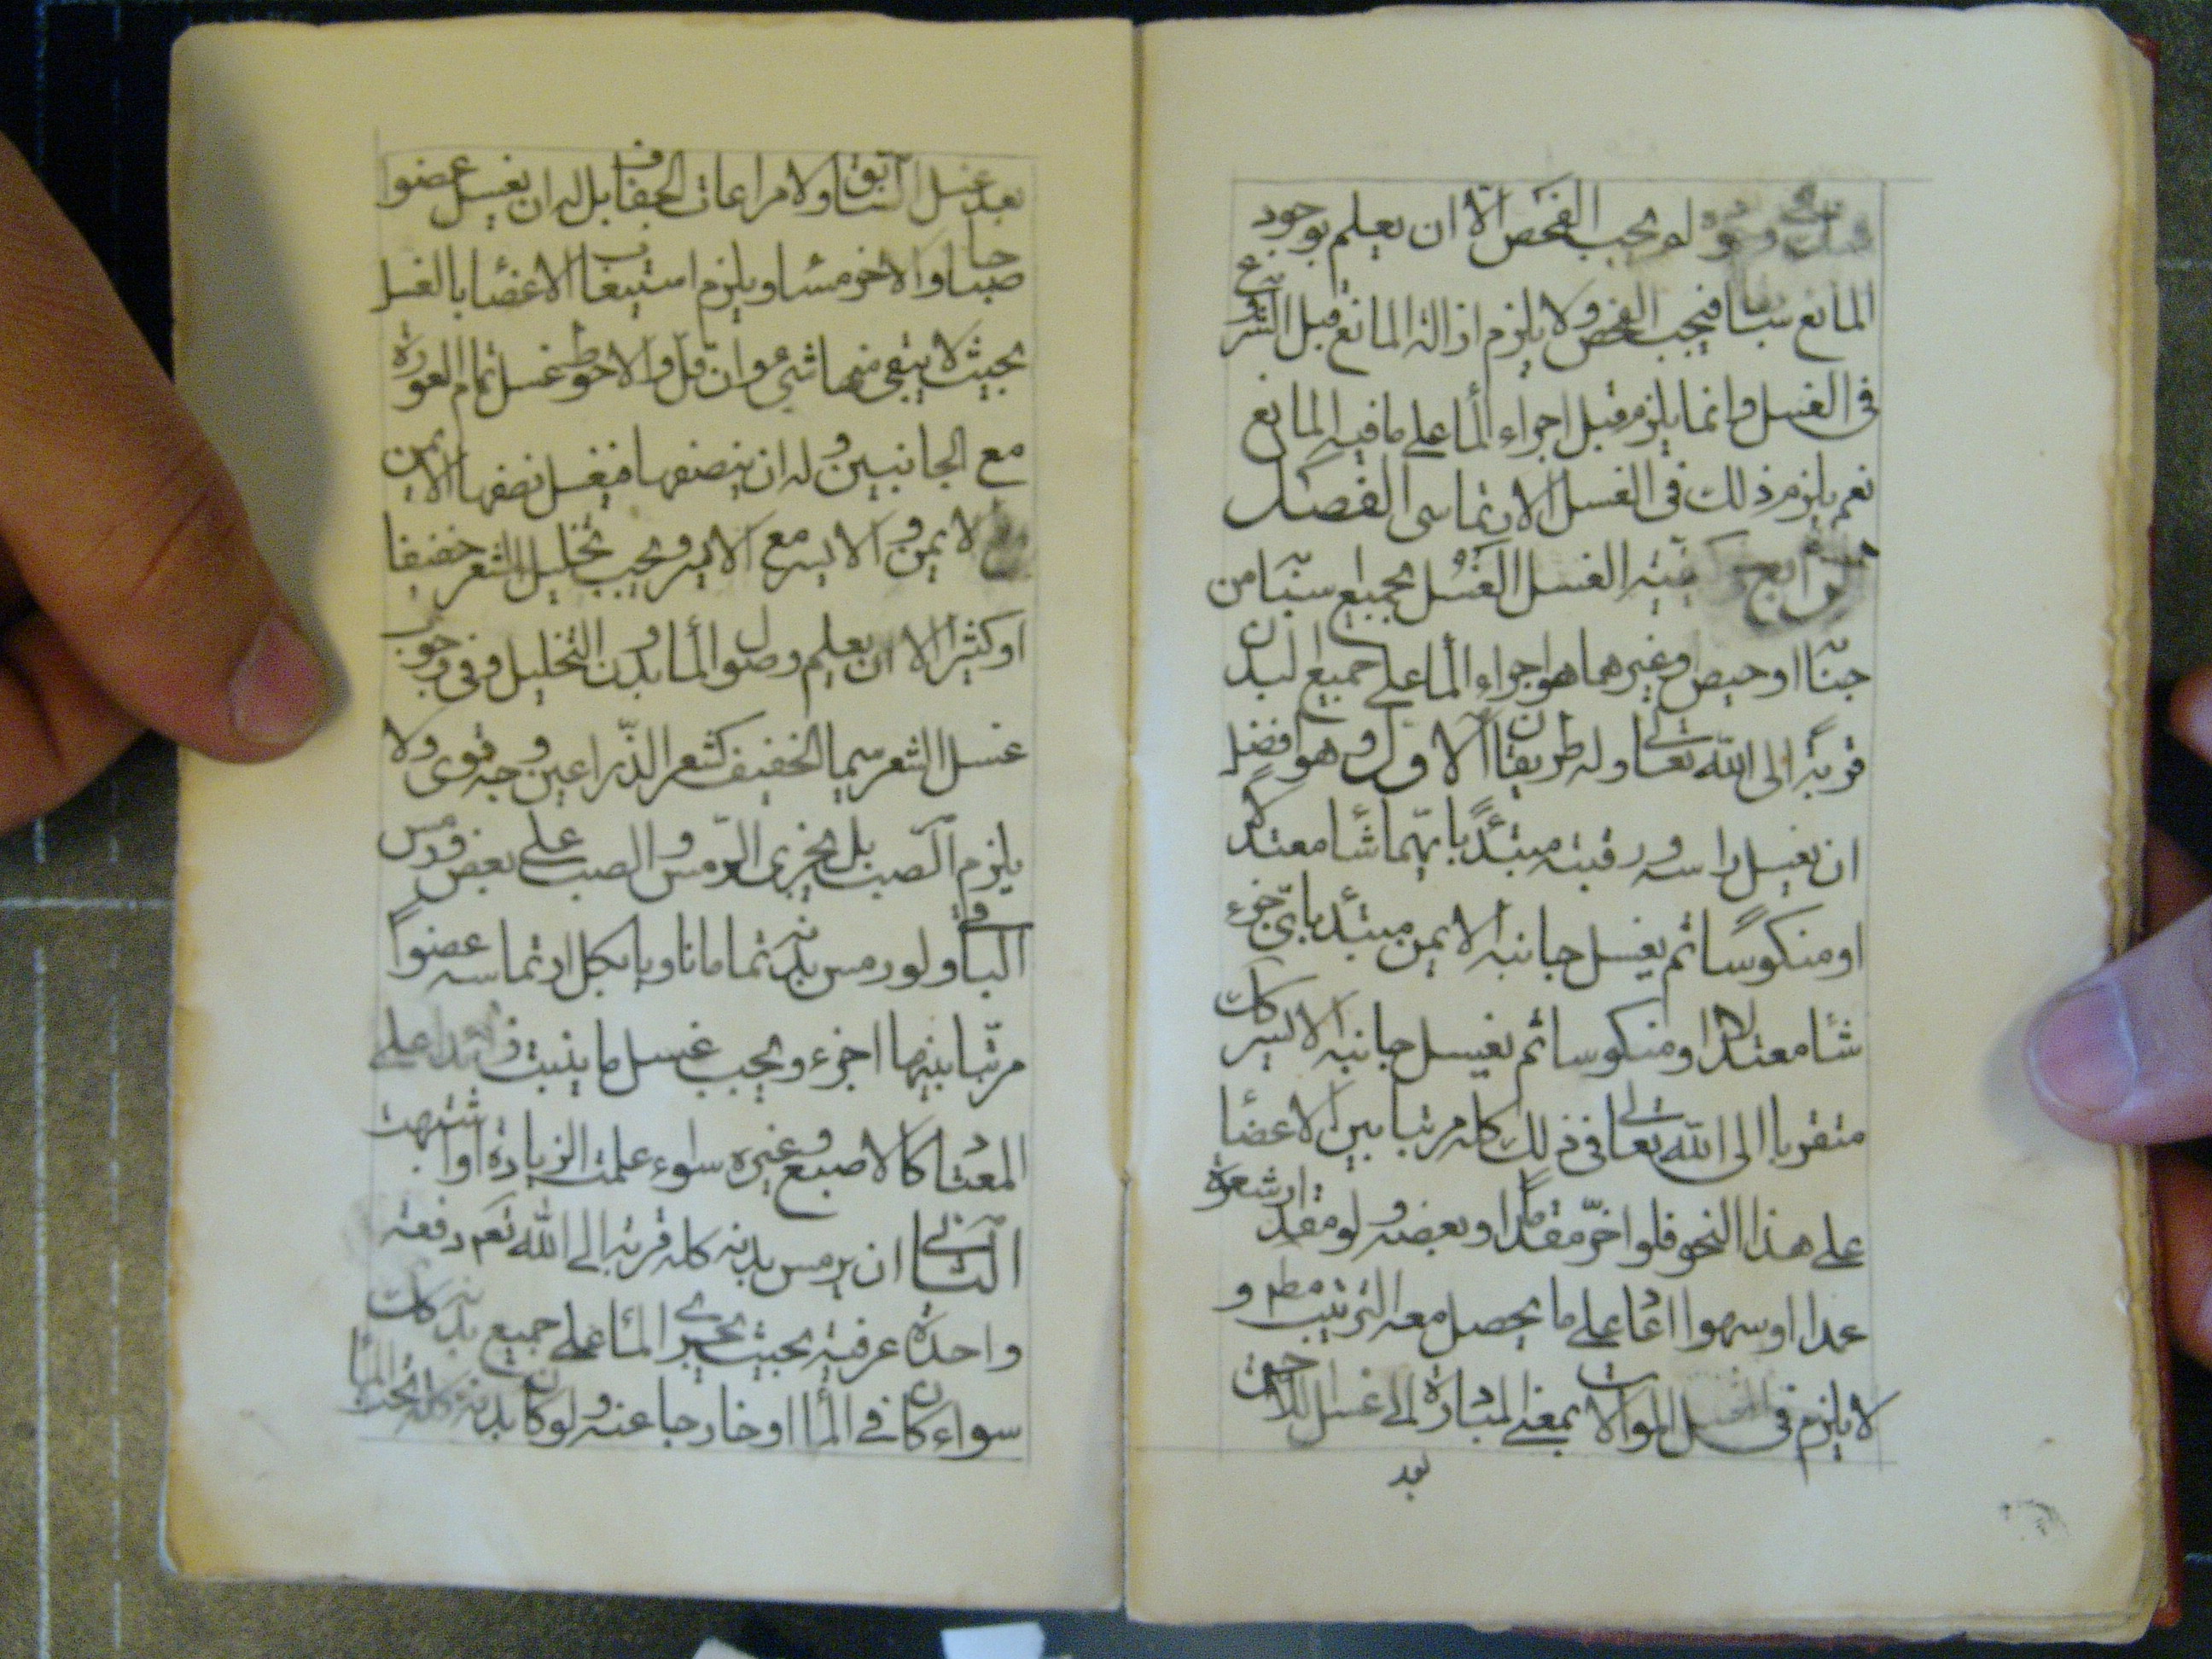 شك ونحوه لم يجب الفحص الا ان يعلم بوجود
المانع سابقا فيجب الفحص ولا يلزم ازالة المانع قبل الشروع
فى الغسل وانما يلزم قبل اجراء الماء على ما فيه المانع
نعم يلزم ذلك فى الغسل الارتماسى الفصل
الرابع كيفية الغسل الغسل بجميع اسبابه من
جنابة او حيض وغيرهما هو اجراء الماء على جميع البدن
قربة الى الله تعالى وله طريقان الاول وهو افضل
ان يغسل راسه ورقبته مبتدئا بايهما شاء معتدلا
او منكوسا ثم يغسل جانبه الايمن مبتدئا باى جزء
شاء معتدلا او منكوسا ثم يغسل جانبه الايسر كك
متقربا الى الله تعالى فى ذلك كله مرتبا بين الاعضاء
على هذا النحو فلو اخر مقدما او بعضه ولو مقدار شعرة
عمدا او سهوا اعاد على ما يحصل معه الترتيب مطم و
لا يلزم فى الغسل الموالات بمعنى المبادرة الى غسل اللاحق
بعد
بعد غسل السابق ولا مراعات الجفاف بل له ان يغسل عضوا
صباحا والاخر مساء ويلزم استيعاب الاعضاء بالغسل
بحيث لا يبقى منها شىء وان قل والاحوط غسل تمام العورة
مع الجانبين وله ان ينصفها فيغسل نصفها الايمن
مع الايمن والايسر مع الايسر ويجب تخليل الشعر خفيفا
او كثيرا الا ان يعلم وصول الماء بدون التخليل وفى وجوب
غسل الشعر سيما الخفيف كشعر الذراعين وجه قوى ولا
يلزم الصب بل يجزى الرمس والصب على بعض ورمس
الباقى ولو رمس بدنه تماما ناويا بكل ارتماسه عضوا
مرتبا بينها اجزء ويجب غسل ما ينبت زائدا على
المعتاد كالاصبع وغيره سواء علمت الزيادة او اشتبهت
الثانى ان يرمس بدنه كله قربة الى الله تعم دفعة
واحدة عرفية بحيث يجرى الماء على جميع بدنه كك
سواء كان فى الماء او خارجا عنه ولو كان بدنه كله تحت الماء